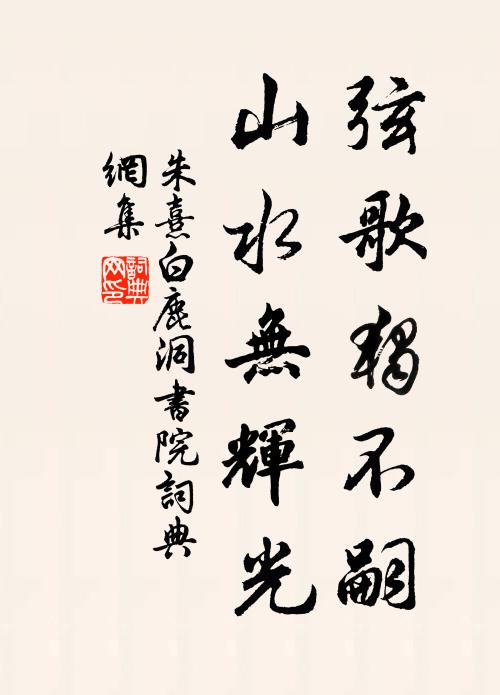 弦歌獨不嗣
山水無輝光
朱熹白鹿洞書院詞典
網集
詞典
网印